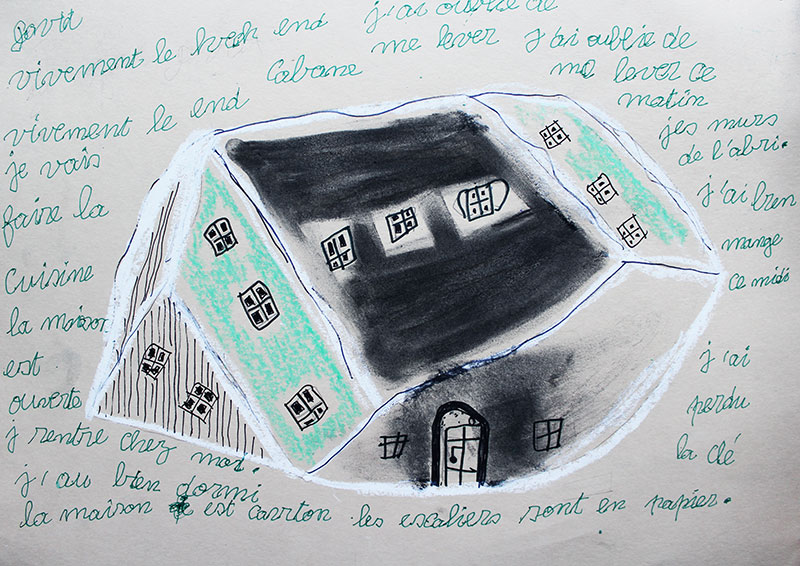 vivement le week end j'ai oublié de
vivement le end Cabane me lever j'ai oublié de
me lever ce
matin
je vais
faire la
cuisine
la maison
est
ouverte
j rentre chez moi.
j'au bien dormi
la maison est carrton les escaliers sont en papier.
jes murs
de l'abri.
j'ai bien
mange
ce midi
j'ai
perdu
la clé